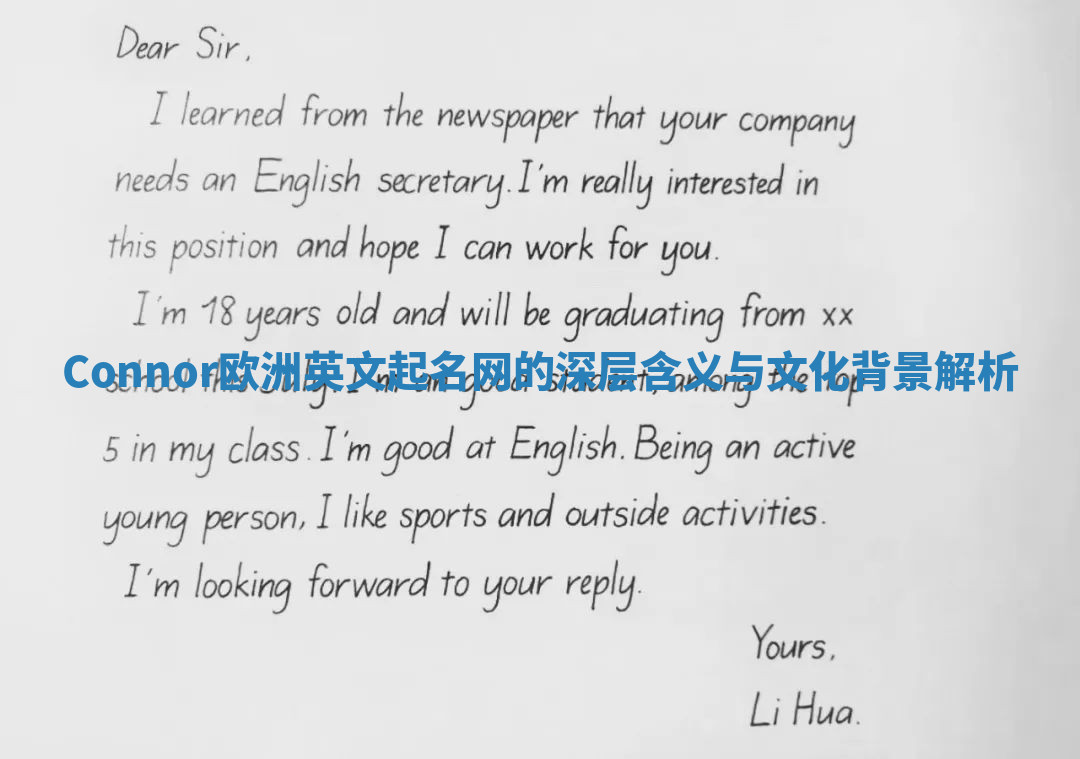 Dear Sir,
I learned from the newspaper that your company
needs an English secretary. I'm really interested in
this position and hope I can work for you.
I'm 18 years old and will be graduating from xx
Connor欧洲英文起名网的深层含义与文化背景解析
school this July. I'm an good student, among the top
5 in my class. I'm good at English. Being an active
young person, I like sports and outside activities.
I'm looking forward to your reply.
Yours,
Li Hua.